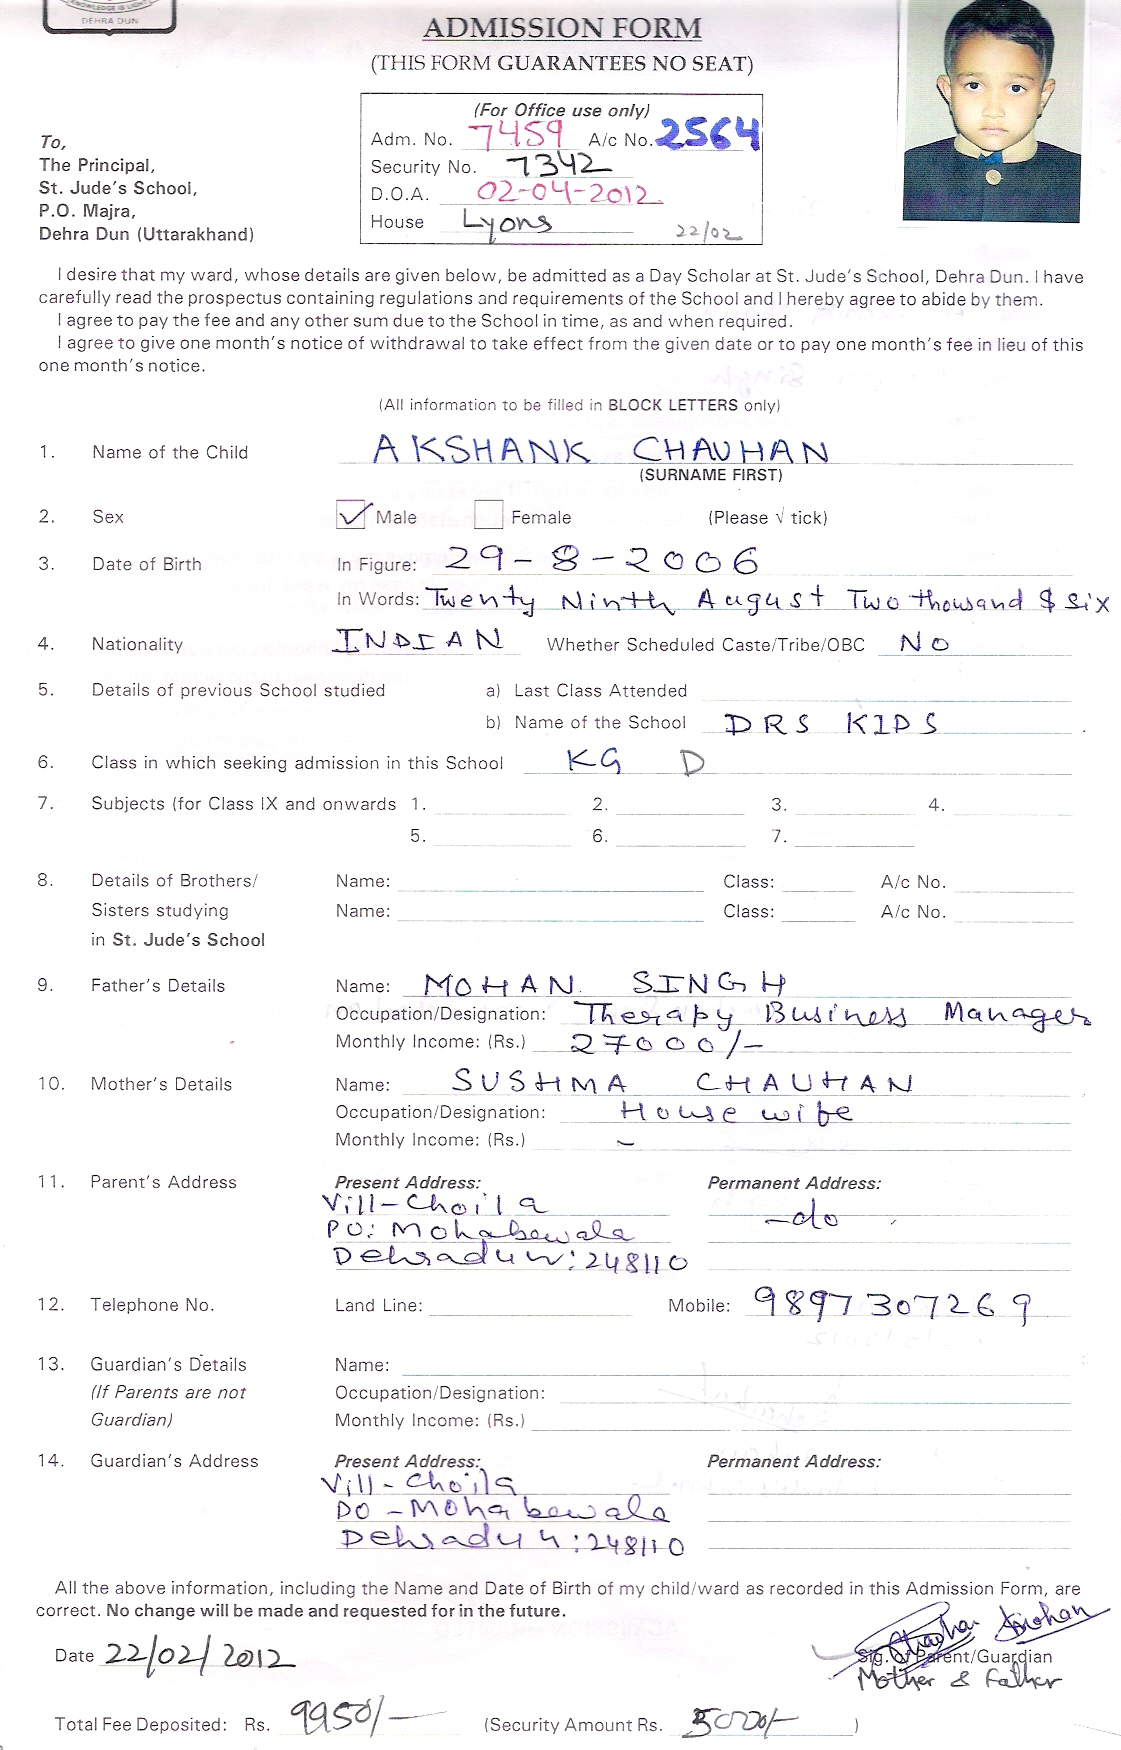 KNOWLEDGE IS LIGHT
DEHRA DUN
ADMISSION FORM
(THIS FORM GUARANTEES NO SEAT)
(For Office use only)
Adm. No. 7459 A/c No. 2564
Security No. 7342
D.O.A. 02-04-2012
House Lyons 22/02
To,
The Principal,
St. Jude's School,
P.O. Majra,
Dehra Dun (Uttarakhand)
I desire that my ward, whose details are given below, be admitted as a Day Scholar at St. Jude's School, Dehra Dun. I have
carefully read the prospectus containing regulations and requirements of the School and I hereby agree to abide by them.
I agree to pay the fee and any other sum due to the School in time, as and when required.
I agree to give one month's notice of withdrawal to take effect from the given date or to pay one month's fee in lieu of this
one month's notice.
(All information to be filled in BLOCK LETTERS only)
1. Name of the Child AKSHANK CHAUHAN
(SURNAME FIRST)
2. Sex ✓ Male Female (Please √ tick)
3. Date of Birth In Figure: 29-8-2006
In Words: Twenty Ninth August Two thousand & Six
4. Nationality INDIAN Whether Scheduled Caste/Tribe/OBC NO
5. Details of previous School studied a) Last Class Attended
b) Name of the School DRS KIDS
6. Class in which seeking admission in this School KG D
7. Subjects (for Class IX and onwards 1. 2. 3. 4.
5. 6. 7.
8. Details of Brothers/ Name: Class: A/c No.
Sisters studying Name: Class: A/c No.
in St. Jude's School
9. Father's Details Name: MOHAN SINGH
Occupation/Designation: Therapy Business Manager
Monthly Income: (Rs.) 27000/-
10. Mother's Details Name: SUSHMA CHAUHAN
Occupation/Designation: House wife
Monthly Income: (Rs.) -
11. Parent's Address Present Address: Permanent Address:
Vill-Choila -do
PO: Mohabewala
Dehradun: 248110
12. Telephone No. Land Line: Mobile: 9897307269
13. Guardian's Details Name:
(If Parents are not Occupation/Designation:
Guardian) Monthly Income: (Rs.)
14. Guardian's Address Present Address: Permanent Address:
Vill-Choila
PO-Mohabewala
Dehradun: 248110
All the above information, including the Name and Date of Birth of my child/ward as recorded in this Admission Form, are
correct. No change will be made and requested for in the future.
Date 22/02/2012 Sig. of Parent/Guardian
Mother & Father
Total Fee Deposited: Rs. 9950/- (Security Amount Rs. 5000/-)